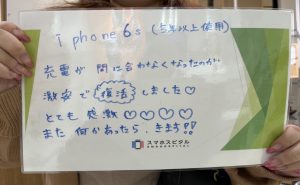 iphone 6s (5年以上使用)
充電が 間に合わなくなったのが
激安で 復活 しました♡
とても 感激 ♡♡♡♡
また 何かあったら、きます!!
スマホスピタル
SMAHOSPITAL